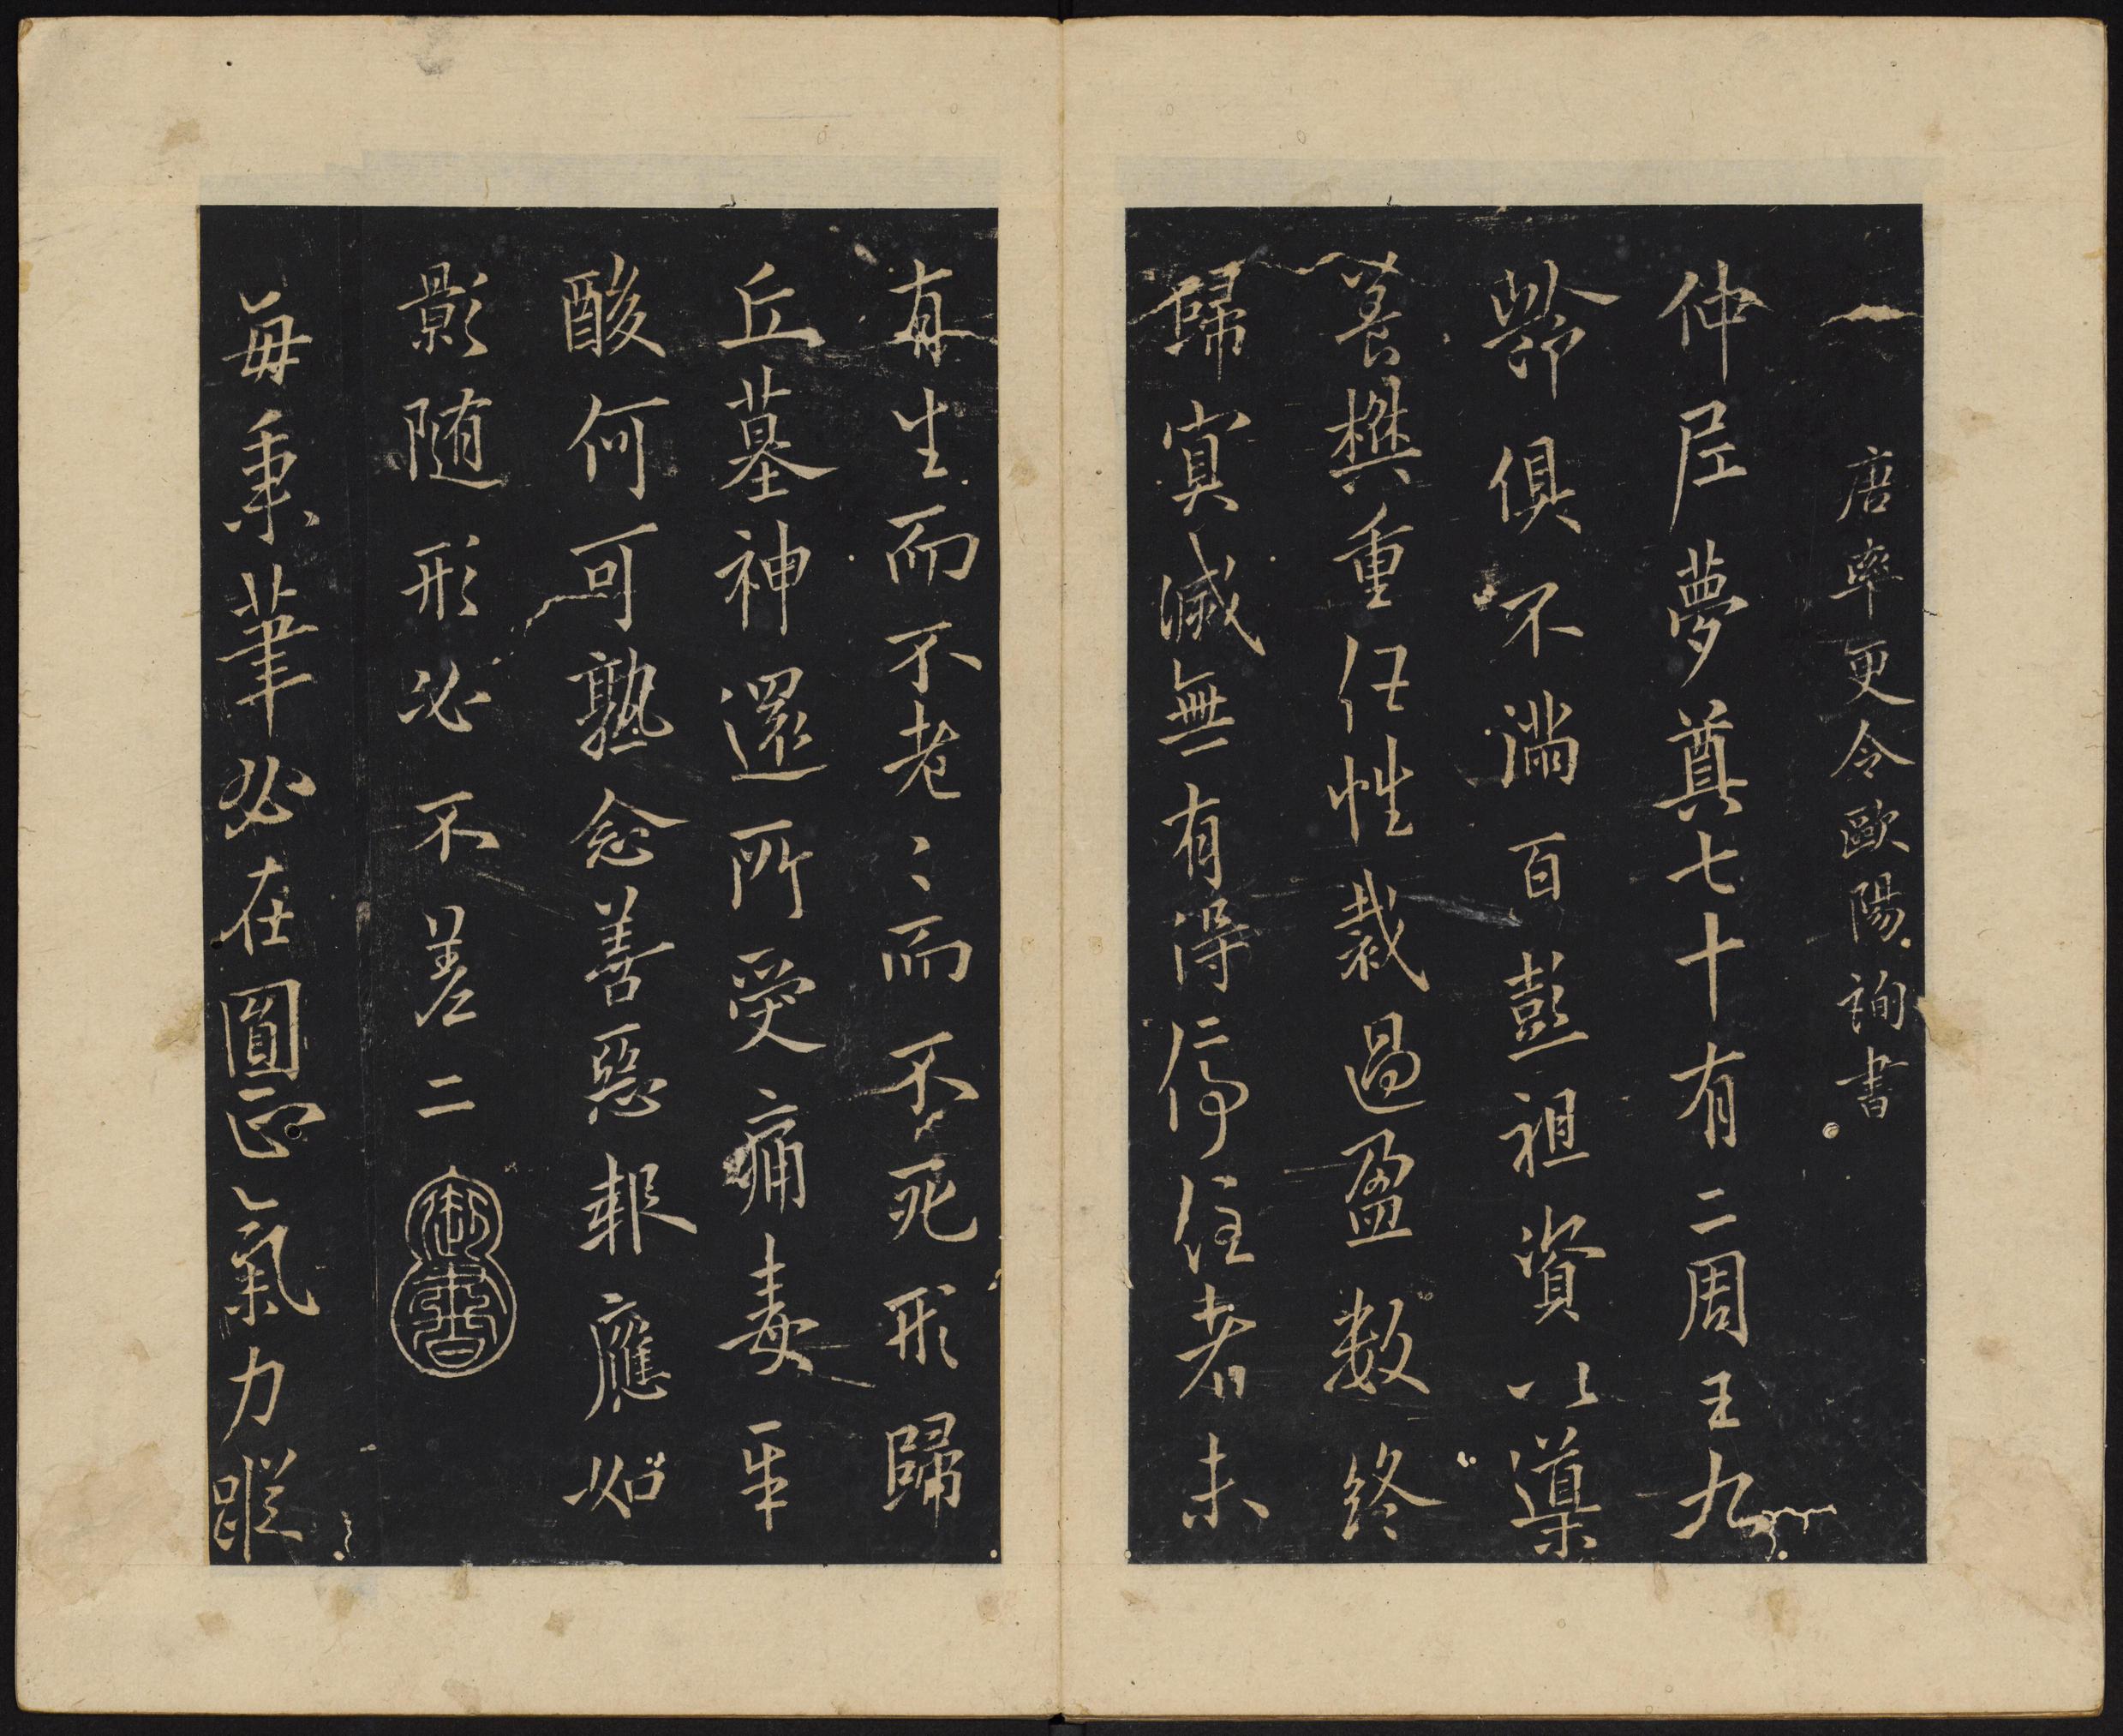 唐率更令歐陽詢書
仲尼夢奠七十有二周王九
齡俱不滿百彭祖資以導
養樊重任性裁過盈數終
歸冥滅無有得停住者未
有生而不老〻而不死形歸
丘墓神還所受痛毒辛
酸何可可熟念善惡報應如
影隨形必不差二
御書
每秉筆必在圓正氣力蹤